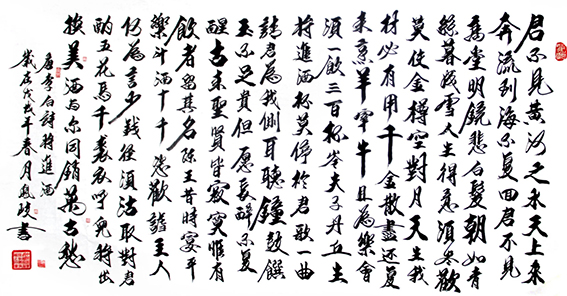 君不見黃河之水天上來
奔流到海不復回君不見
高堂明鏡悲白髮朝如青
絲暮成雪人生得意須盡歡
莫使金樽空對月天生我
材必有用千金散盡還復
來烹羊宰牛且為樂會
須一飲三百杯岑夫子丹丘生
將進酒杯莫停於君歌一曲
請君為我側耳聽鐘鼓饌
玉不足貴但願長醉不復
醒古來聖賢皆寂寞惟有
飲者留其名陳王昔時宴平
樂斗酒十千恣歡謔主人
何為言少錢徑須沽取對君
酌五花馬千裘呼兒將出
換美酒与尔同銷萬古愁
唐李白詩將進酒
歲在戊戌年春月書